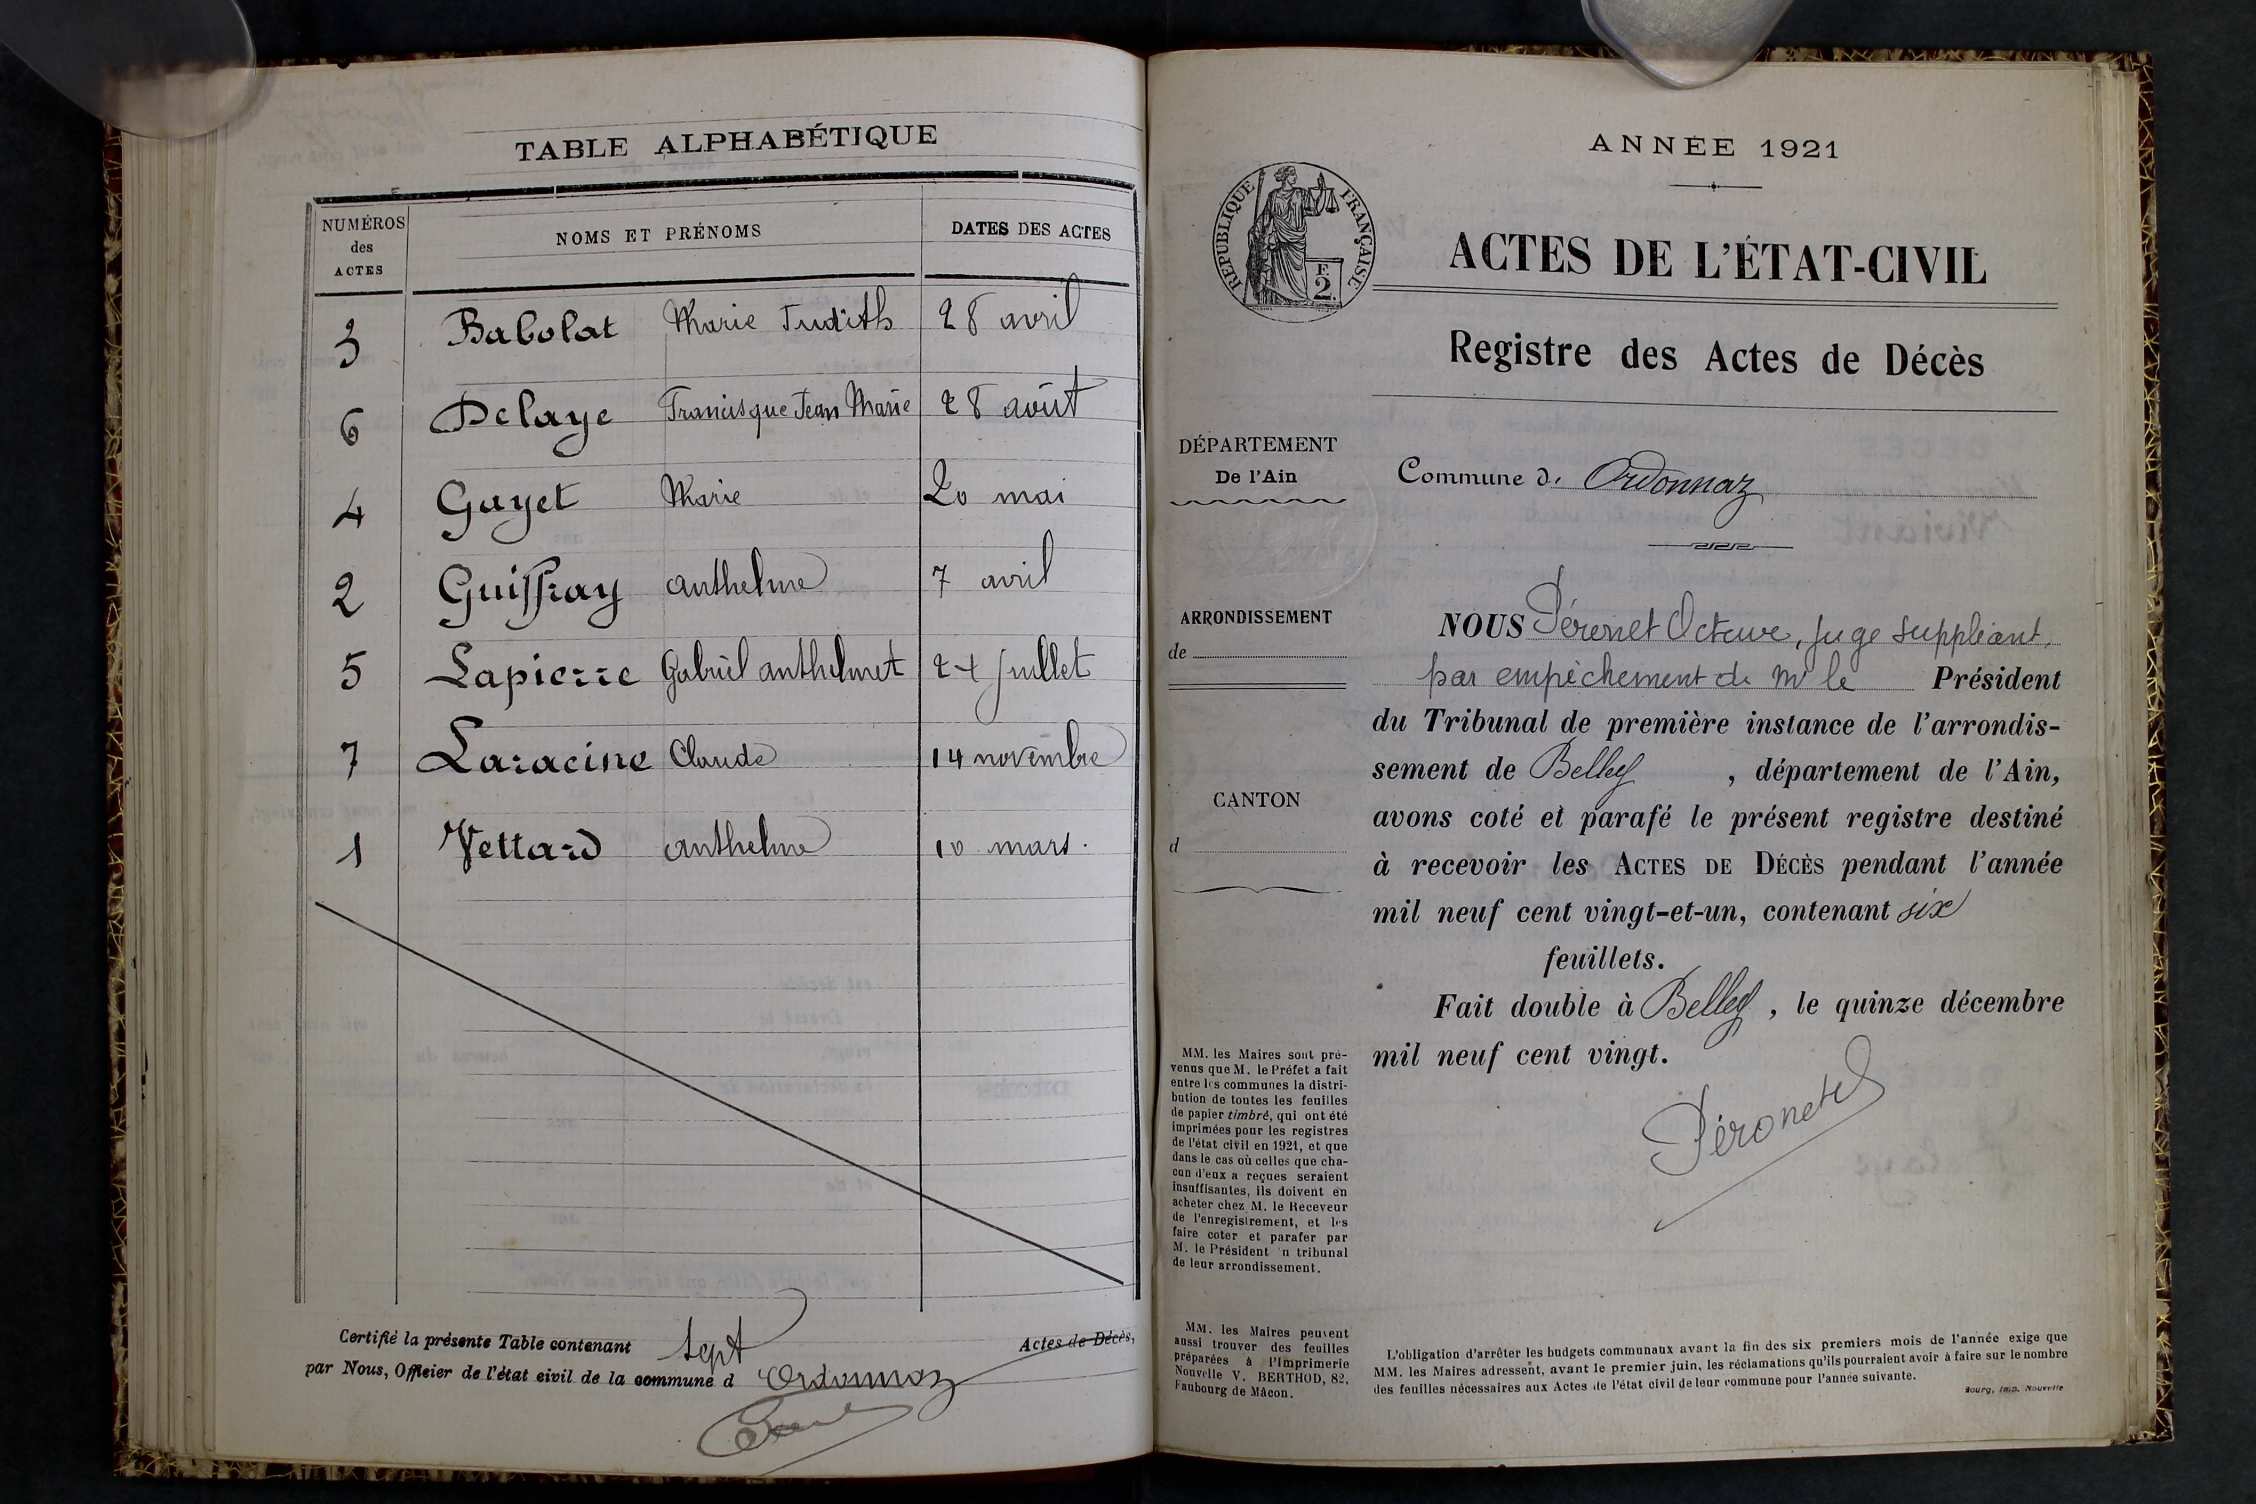 TABLE ALPHABÉTIQUE
NUMÉROS des ACTES NOMS ET PRÉNOMS DATES DES ACTES
3 Babolat Marie Judith 28 avril
6 Delaye Francisque Jean Marie 28 août
4 Guyet Marie 20 mai
2 Guiffray anthelme 7 avril
5 Lapierre Gabriel anthelmet 24 juillet
7 Laracine Claude 14 novembre
1 Vettard anthelme 10 mars.
Certifié la présente Table contenant sept Actes de Décès,
par Nous, Officier de l'état civil de la commune d Ordonnaz
ANNÉE 1921
RÉPUBLIQUE FRANÇAISE
F. 2.
ACTES DE L'ÉTAT-CIVIL
Registre des Actes de Décès
DÉPARTEMENT
De l'Ain
Commune d. Ordonnaz
ARRONDISSEMENT
de
CANTON
d
NOUS Péronet Octave, juge suppléant,
par empêchement de Mr le Président
du Tribunal de première instance de l'arrondis-
sement de Belley, département de l'Ain,
avons coté et parafé le présent registre destiné
à recevoir les ACTES DE DÉCÈS pendant l'année
mil neuf cent vingt-et-un, contenant six
feuillets.
Fait double à Belley, le quinze décembre
mil neuf cent vingt.
Péronet
MM. les Maires sont pré-
venus que M. le Préfet a fait
entre les communes la distri-
bution de toutes les feuilles
de papier timbré, qui ont été
imprimées pour les registres
de l'état civil en 1921, et que
dans le cas où celles que cha-
cun d'eux a reçues seraient
insuffisantes, ils doivent en
acheter chez M. le Receveur
de l'enregistrement, et les
faire coter et parafer par
M. le Président n tribunal
de leur arrondissement.
MM. les Maires peuvent
aussi trouver des feuilles
préparées à l'Imprimerie
Nouvelle V. BERTHOD, 82,
Faubourg de Mâcon.
L'obligation d'arrêter les budgets communaux avant la fin des six premiers mois de l'année exige que
MM. les Maires adressent, avant le premier juin, les réclamations qu'ils pourraient avoir à faire sur le nombre
des feuilles nécessaires aux Actes de l'état civil de leur commune pour l'année suivante.
Bourg, Imp. Nouvelle